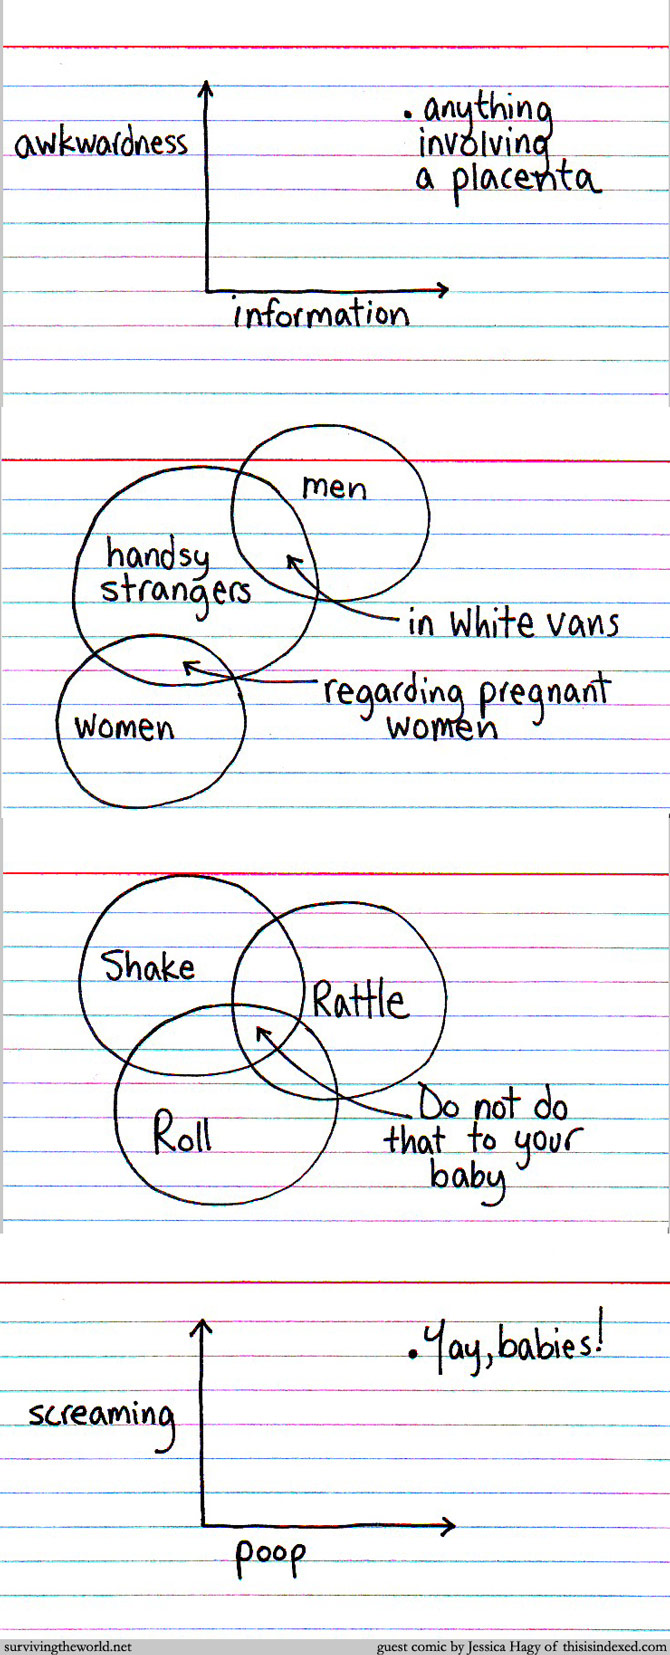 awkwardness
. anything
involving
a placenta
information
men
handsy
strangers
in white vans
regarding pregnant
women
women
Shake
Rattle
Roll
Do not do
that to your
baby
. Yay, babies!
screaming
poop
survivingtheworld.net
guest comic by Jessica Hagy of thisisindexed.com